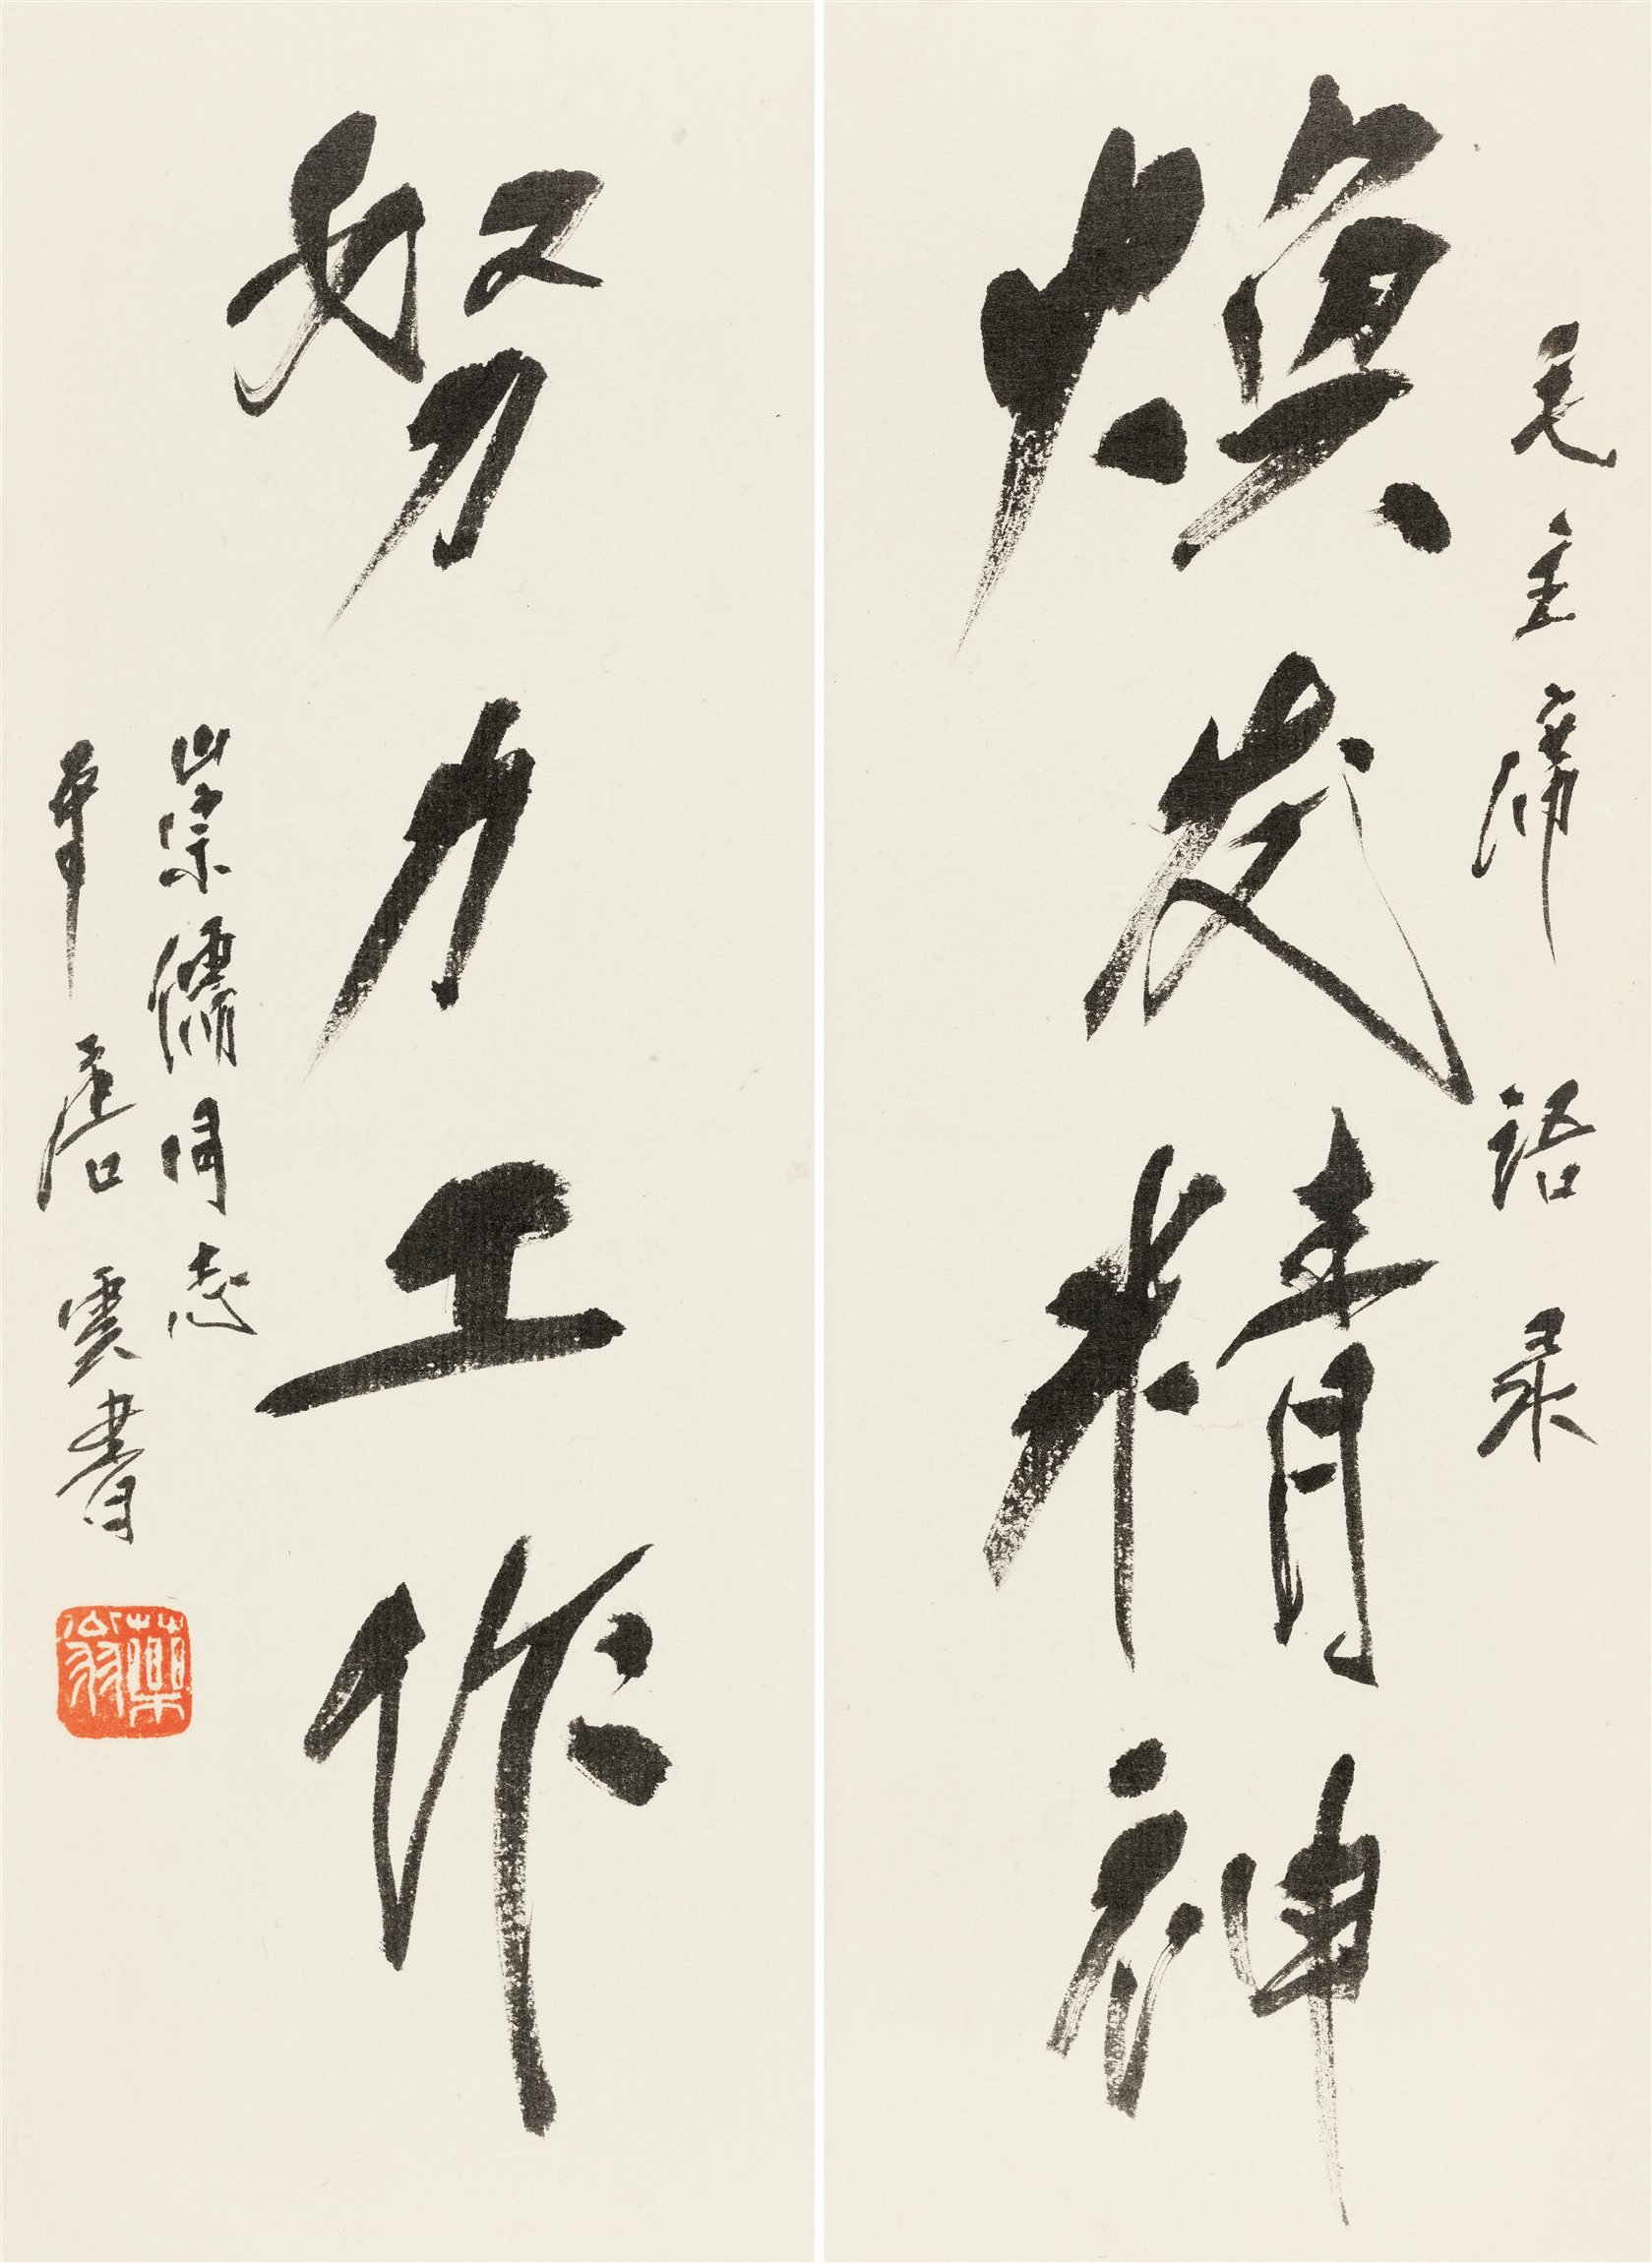 毛主席语录
焕发精神
努力工作
崇儒同志
唐雲書
藥翁